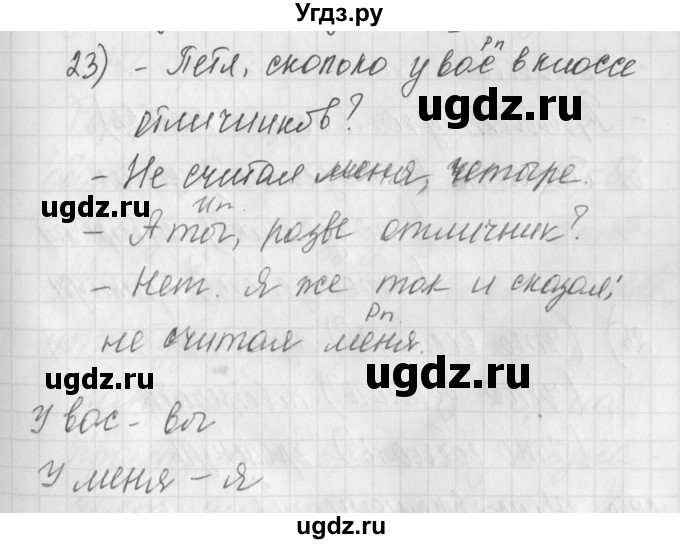 Угдз.ру
23) - Петя, сколько у вас в классе
Рп
отличников?
ugdz.ru
- Не считая меня, четыре.
ugdz.ru
Ип.
- А ты, разве отличник?
- Нет. Я же так и сказал:
Рп
не считая меня.
ugdz.ru
ugdz.ru
У вас - вы
У меня - я
ugdz.ru